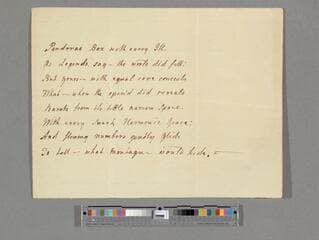 Pandoras Box with every Ill.
As Legends say – the World did fill:
But yours – with equal care conceals
What – when she open'd did reveals
from its little narrow Space.
With every Harmonic Grace:
And flowing numbers gently Glide
To tell – what Montagu – would hide. –